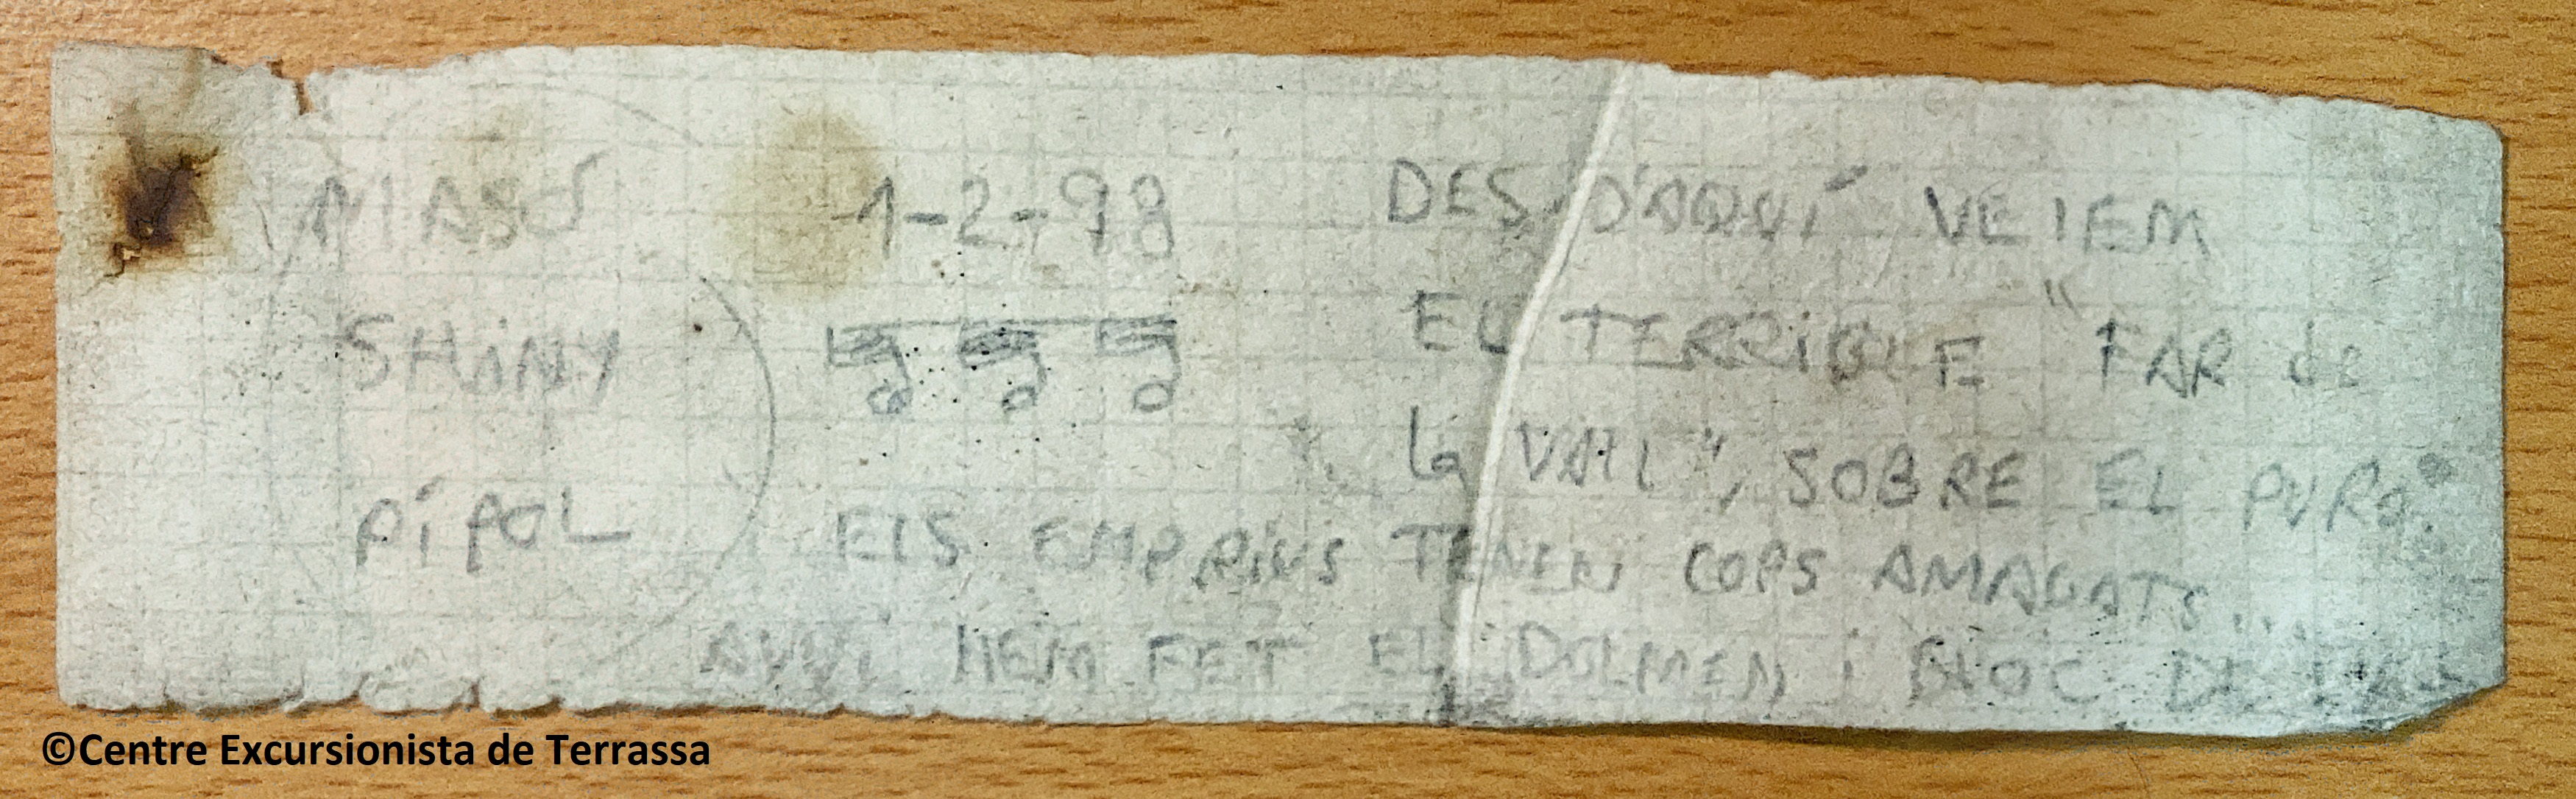 1-2-98
DES D'AQUÍ VEIEM
EL TERRIBLE "FAR de
la VALL", SOBRE EL
SHiNY
PíPOL
ELS EMPRIUS TENEN COPS AMAGATS...
AVUI HEM FET EL DOLMEN i BLOC DE
©Centre Excursionista de Terrassa